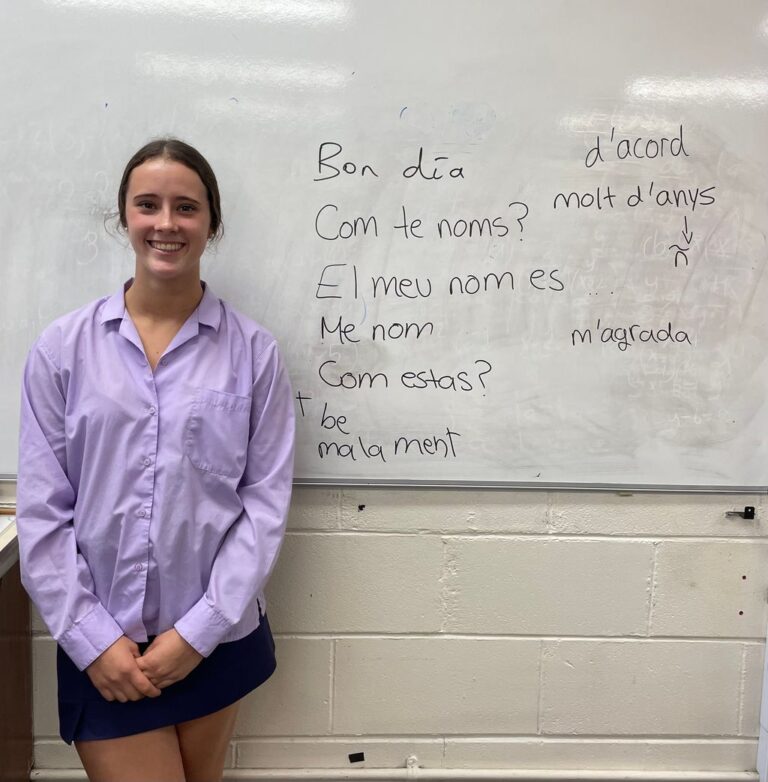 Bon día
Com te noms?
El meu nom es ...
Me nom
Com estas?
+ be
malament
d'acord
molt d'anys
↓
ñ
m'agrada